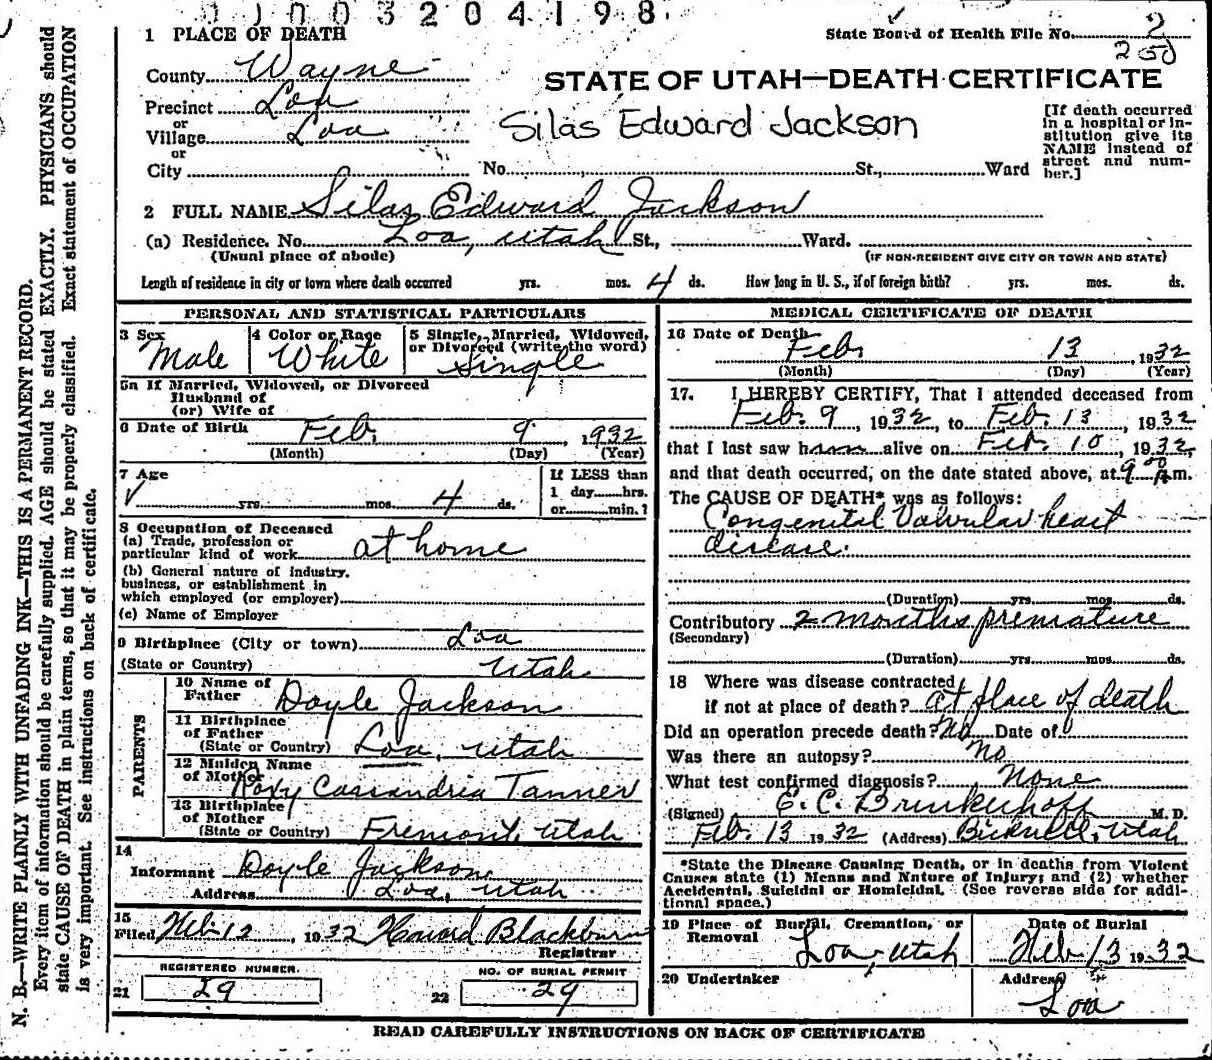 0 0 0 3 2 0 4 1 9 8
1 PLACE OF DEATH
State Board of Health File No. 2
200
County Wayne
STATE OF UTAH—DEATH CERTIFICATE
Precinct Loa
or
Village Loa
Silas Edward Jackson
[If death occurred in a hospital or institution give its NAME instead of street and number.]
or
City No. St., Ward
2 FULL NAME Silas Edward Jackson
(a) Residence. No. Loa, Utah St., Ward.
(Usual place of abode) (IF NON-RESIDENT GIVE CITY OR TOWN AND STATE)
Length of residence in city or town where death occurred yrs. mos. 4 ds. How long in U. S., if of foreign birth? yrs. mos. ds.
PERSONAL AND STATISTICAL PARTICULARS
3 Sex
Male
4 Color or Race
White
5 Single, Married, Widowed, or Divorced (write the word)
Single
5a If Married, Widowed, or Divorced
Husband of
(or) Wife of
6 Date of Birth Feb. 9, 1932
(Month) (Day) (Year)
7 Age
yrs. mos. 4 ds.
If LESS than
1 day hrs.
or min.?
8 Occupation of Deceased
(a) Trade, profession or
particular kind of work at home
(b) General nature of industry,
business, or establishment in
which employed (or employer)
(c) Name of Employer
9 Birthplace (City or town) Loa
(State or Country) Utah
PARENTS
10 Name of
Father Doyle Jackson
11 Birthplace
of Father
(State or Country) Loa, Utah
12 Maiden Name
of Mother Roxy Cassandria Tanner
13 Birthplace
of Mother
(State or Country) Fremont, Utah
14
Informant Doyle Jackson
Address Loa, Utah
15
Filed Feb 12, 1932 Howard Blackburn
Registrar
REGISTERED NUMBER.
21 29
NO. OF BURIAL PERMIT
22 29
MEDICAL CERTIFICATE OF DEATH
16 Date of Death
Feb. 13, 1932
(Month) (Day) (Year)
17. I HEREBY CERTIFY, That I attended deceased from
Feb. 9, 1932, to Feb. 13, 1932
that I last saw him alive on Feb. 10, 1932,
and that death occurred, on the date stated above, at 9 00 A.m.
The CAUSE OF DEATH* was as follows:
Congenital Valvular heart
disease.
(Duration) yrs. mos. ds.
Contributory 2 months premature
(Secondary)
(Duration) yrs. mos. ds.
18 Where was disease contracted
if not at place of death? at place of death
Did an operation precede death? No Date of
Was there an autopsy? No
What test confirmed diagnosis? None
(Signed) E. C. Brinkerhoff M. D.
Feb. 13 1932 (Address) Bicknell, Utah
*State the Disease Causing Death, or in deaths from Violent
Causes state (1) Means and Nature of Injury; and (2) whether
Accidental, Suicidal or Homicidal. (See reverse side for addi-
tional space.)
19 Place of Burial, Cremation, or
Removal Loa, Utah
Date of Burial
Feb 13 1932
20 Undertaker
Address
Loa
READ CAREFULLY INSTRUCTIONS ON BACK OF CERTIFICATE
N. B.—WRITE PLAINLY WITH UNFADING INK—THIS IS A PERMANENT RECORD.
Every item of information should be carefully supplied. AGE should be stated EXACTLY. PHYSICIANS should
state CAUSE OF DEATH in plain terms, so that it may be properly classified. Exact statement of OCCUPATION
is very important. See instructions on back of certificate.